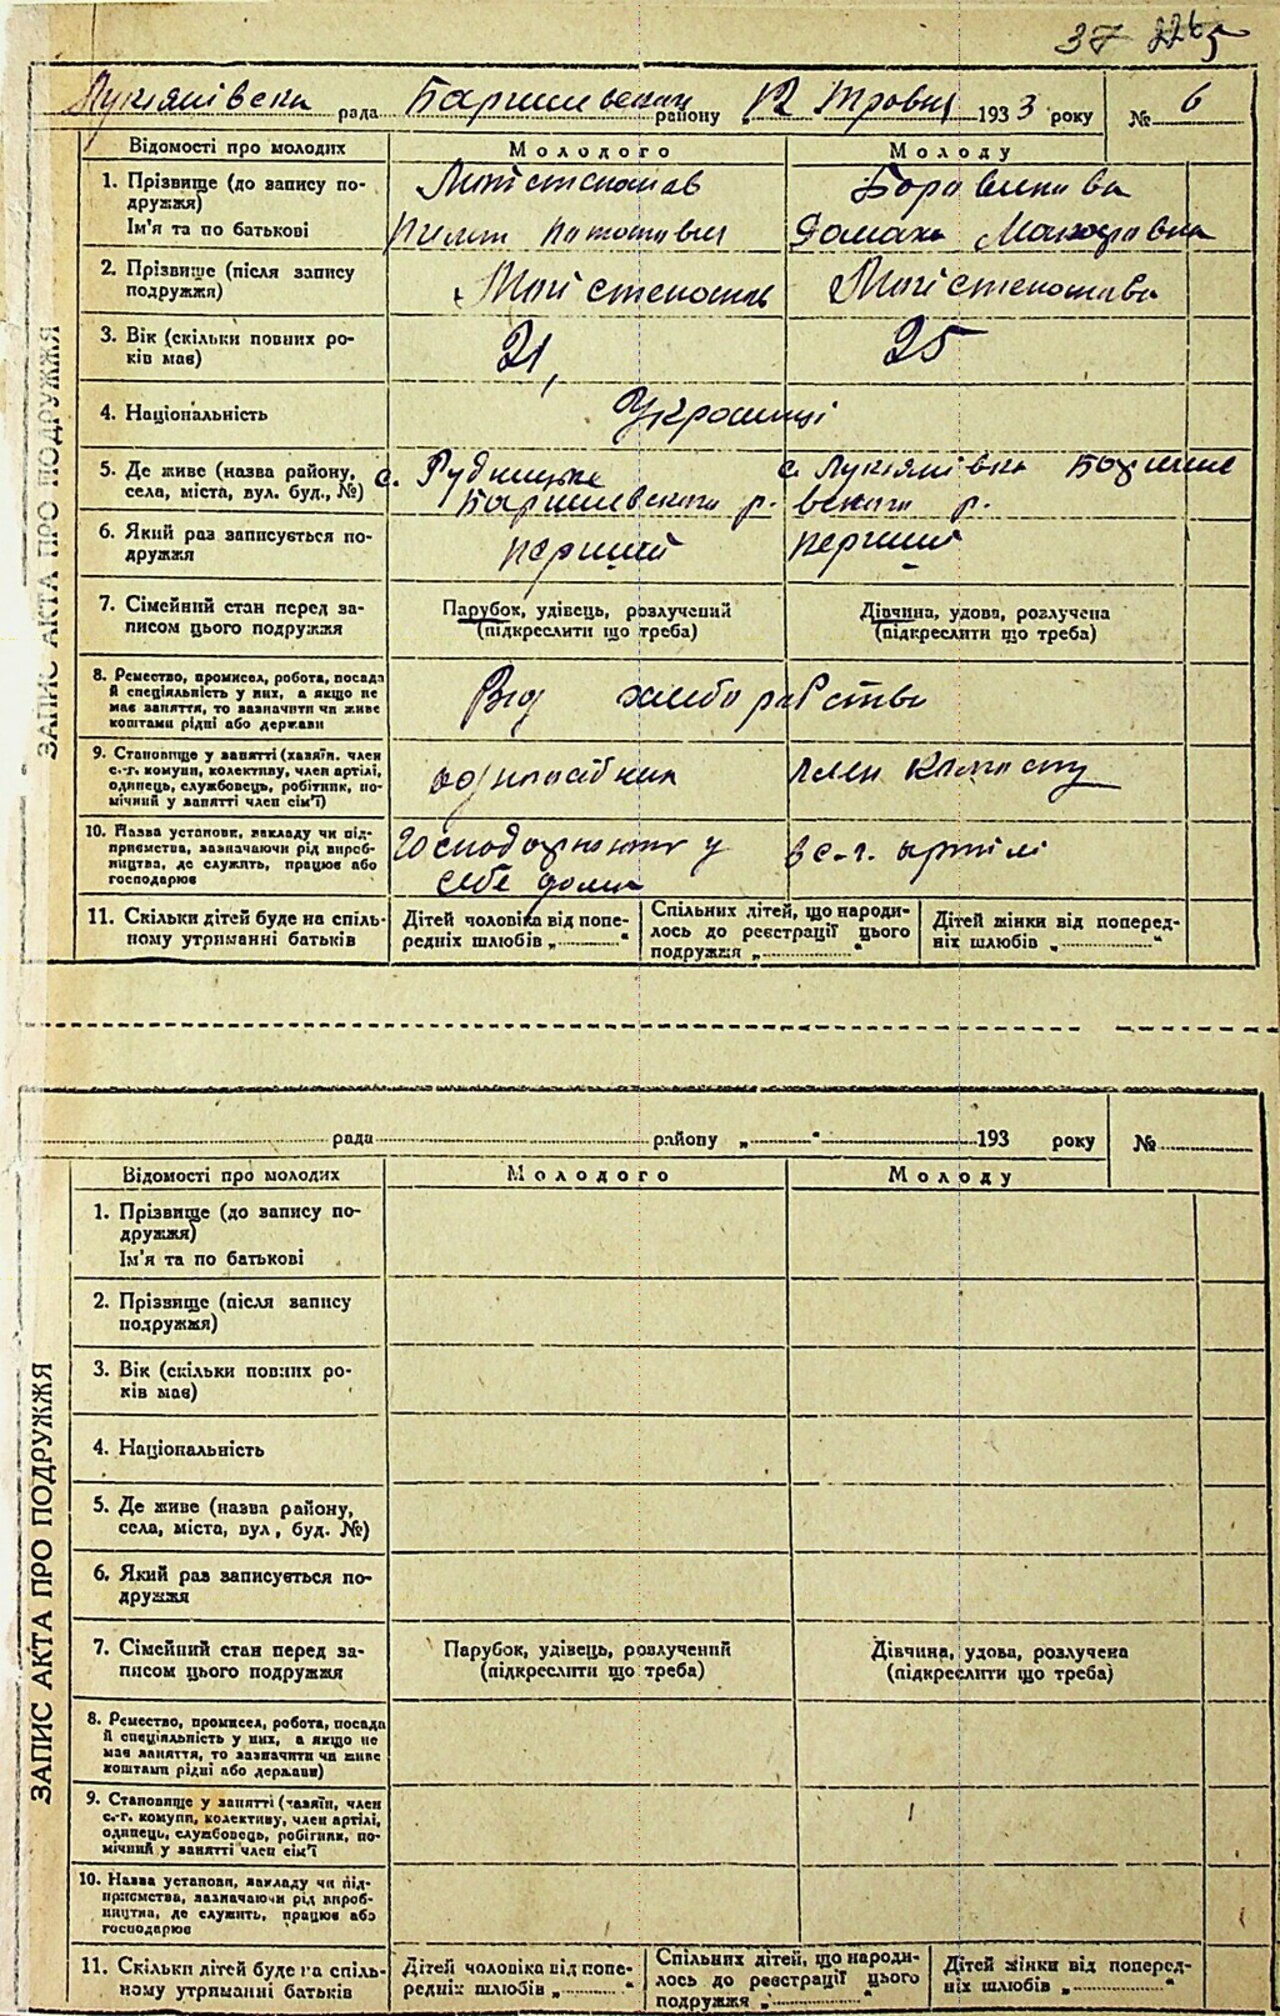 37 226 5
Лукіянівська рада Баришевський району „12 травня 1933 року № 6
ЗАПИС АКТА ПРО ПОДРУЖЖЯ
Відомості про молодих Молодого Молоду
1. Прізвище (до запису по-
дружжя)
Ім'я та по батькові
Домаха Макаровна
2. Прізвище (після запису
подружжя)
3. Вік (скільки повних ро-
ків має) 21, 25
4. Національність Українці
5. Де живе (назва району,
села, міста, вул. буд., №)
с. Рудницьке
Баришевского р.
с. Лукіянівка Баришев
вского р.
6. Який раз записується по-
дружжя перший перший
7. Сімейний стан перед за-
писом цього подружжя
Парубок, удівець, розлучений
(підкреслити що треба)
Дівчина, удова, розлучена
(підкреслити що треба)
8. Ремество, промисел, робота, посада
й спеціяльність у них, а якщо не
має заняття, то зазначити чи живе
коштами рідні або держави
Від хлеборобства
9. Становище у занятті (хазяїн, член
с.-г. комуни, колективу, член артілі,
одинець, службовець, робітник, по-
мічний у занятті член сім'ї)
одноосібник член колгоспу
10. Назва установи, закладу чи під-
приємства, зазначаючи рід вироб-
ництва, де служить, працює або
господарює
у
себе дома
в с.-г. артілі
11. Скільки дітей буде на спіль-
ному утриманні батьків
Дітей чоловіка від попе-
редніх шлюбів „ “
Спільних дітей, що народи-
лось до реєстрації цього
подружжя „ “
Дітей жінки від поперед-
ніх шлюбів „ “
рада району „ “ 193 року №
ЗАПИС АКТА ПРО ПОДРУЖЖЯ
Відомості про молодих Молодого Молоду
1. Прізвище (до запису по-
дружжя)
Ім'я та по батькові
2. Прізвище (після запису
подружжя)
3. Вік (скільки повних ро-
ків має)
4. Національність
5. Де живе (назва району,
села, міста, вул, буд. №)
6. Який раз записується по-
дружжя
7. Сімейний стан перед за-
писом цього подружжя
Парубок, удівець, розлучений
(підкреслити що треба)
Дівчина, удова, розлучена
(підкреслити що треба)
8. Ремество, промисел, робота, посада
й спеціяльність у них, а якщо не
має заняття, то зазначити чи живе
коштами рідні або держави)
9. Становище у занятті (хазяїн, член
с.-г. комуни, колективу, член артілі,
одинець, службовець, робітник, по-
мічний у занятті член сім'ї
10. Назва установи, закладу чи під-
приємства, зазначаючи рід вироб-
ництва, де служить, працює або
господарює
11. Скільки дітей буде на спіль-
ному утриманні батьків
Дітей чоловіка від попе-
редніх шлюбів „ “
Спільних дітей, що народи-
лось до реєстрації цього
подружжя „ “
Дітей жінки від поперед-
ніх шлюбів „ “